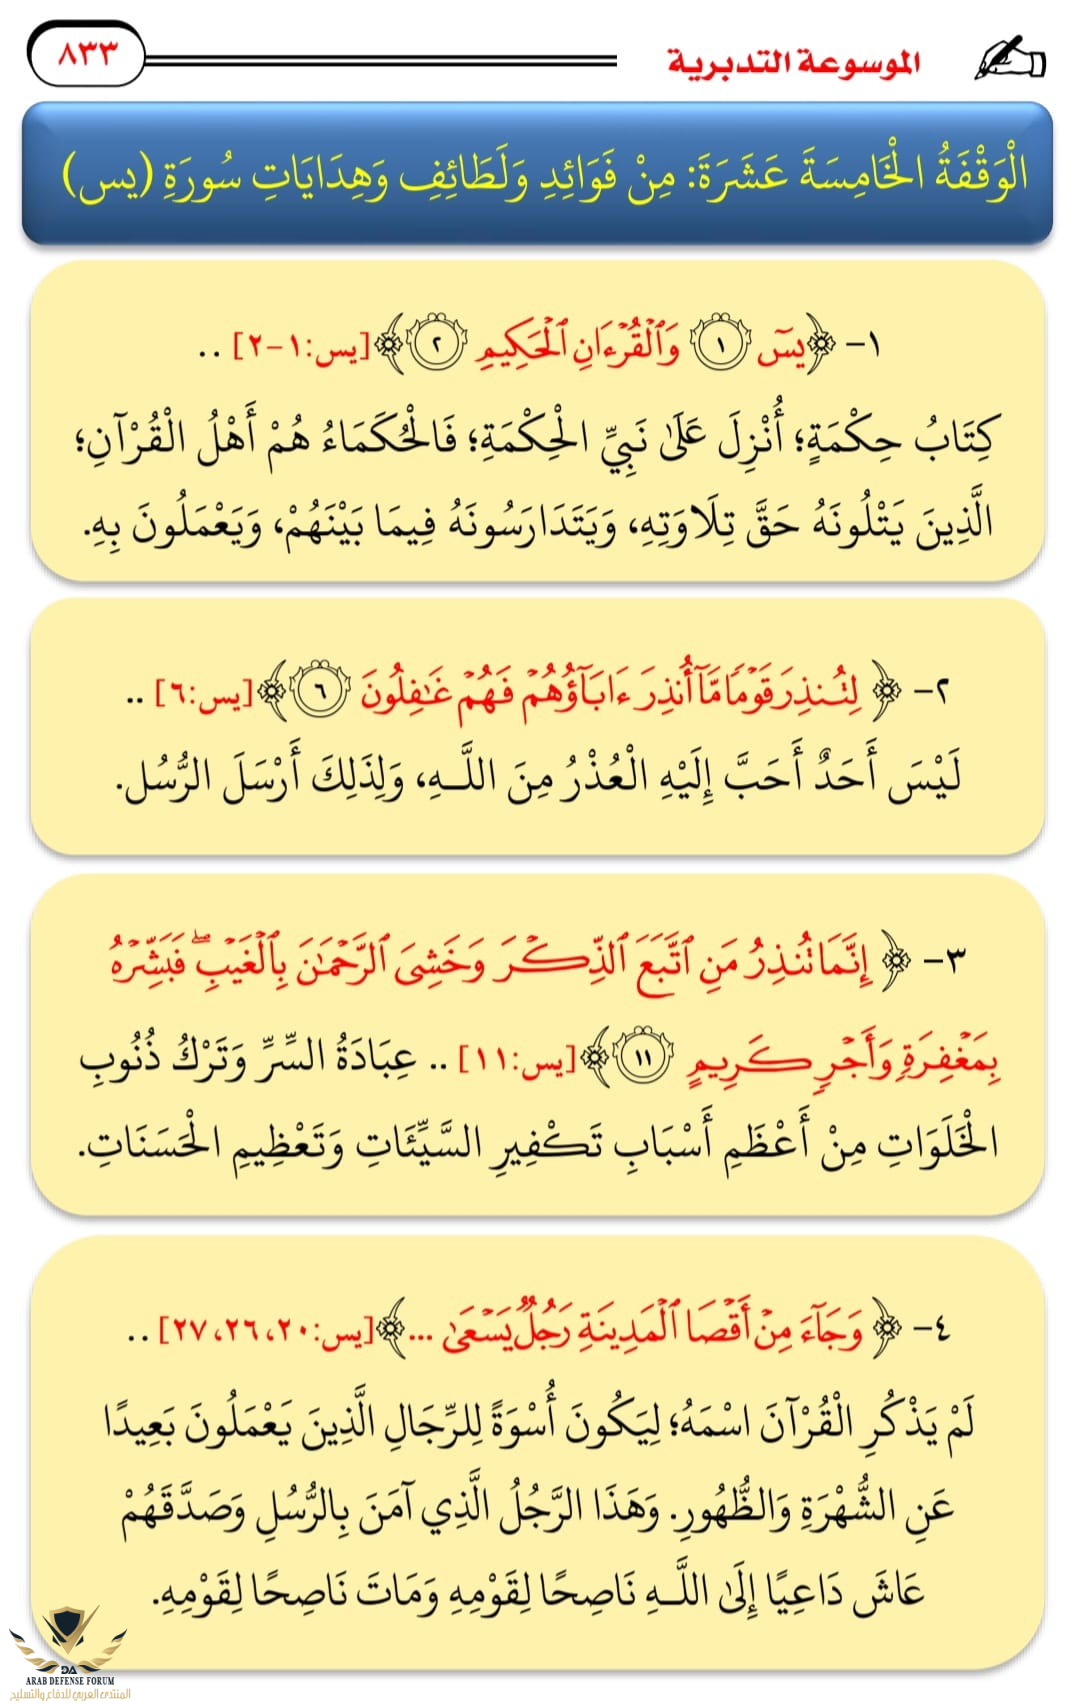 الموسوعة التدبرية
٨٣٣
الْوَقْفَةُ الْخَامِسَةَ عَشَرَةَ: مِنْ فَوَائِدِ وَلَطَائِفِ وَهِدَايَاتِ سُورَةِ (يس)
١- ﴿يسٓ ١ وَٱلْقُرْءَانِ ٱلْحَكِيمِ ٢﴾ [يس:١-٢] ..
كِتَابُ حِكْمَةٍ؛ أُنْزِلَ عَلَىٰ نَبِيِّ الْحِكْمَةِ؛ فَالْحُكَمَاءُ هُمْ أَهْلُ الْقُرْآنِ؛
الَّذِينَ يَتْلُونَهُ حَقَّ تِلَاوَتِهِ، وَيَتَدَارَسُونَهُ فِيمَا بَيْنَهُمْ، وَيَعْمَلُونَ بِهِ.
٢- ﴿لِتُنذِرَ قَوْمًا مَّآ أُنذِرَ ءَابَآؤُهُمْ فَهُمْ غَٰفِلُونَ ٦﴾ [يس:٦] ..
لَيْسَ أَحَدٌ أَحَبَّ إِلَيْهِ الْعُذْرُ مِنَ اللَّـهِ، وَلِذَلِكَ أَرْسَلَ الرُّسُل.
٣- ﴿إِنَّمَا تُنذِرُ مَنِ ٱتَّبَعَ ٱلذِّكْرَ وَخَشِىَ ٱلرَّحْمَٰنَ بِٱلْغَيْبِ ۖ فَبَشِّرْهُ
بِمَغْفِرَةٍ وَأَجْرٍ كَرِيمٍ ١١﴾ [يس:١١] .. عِبَادَةُ السِّرِّ وَتَرْكُ ذُنُوبِ
الْخَلَوَاتِ مِنْ أَعْظَمِ أَسْبَابِ تَكْفِيرِ السَّيِّئَاتِ وَتَعْظِيمِ الْحَسَنَاتِ.
٤- ﴿وَجَآءَ مِنْ أَقْصَا ٱلْمَدِينَةِ رَجُلٌ يَسْعَىٰ ...﴾ [يس:٢٠، ٢٦، ٢٧] ..
لَمْ يَذْكُرِ الْقُرْآنَ اسْمَهُ؛ لِيَكُونَ أُسْوَةً لِلرِّجَالِ الَّذِينَ يَعْمَلُونَ بَعِيدًا
عَنِ الشُّهْرَةِ وَالظُّهُورِ. وَهَذَا الرَّجُلُ الَّذِي آمَنَ بِالرُّسُلِ وَصَدَّقَهُمْ
عَاشَ دَاعِيًا إِلَىٰ اللَّـهِ نَاصِحًا لِقَوْمِهِ وَمَاتَ نَاصِحًا لِقَوْمِهِ.
DA
ARAB DEFENSE FORUM
المنتدى العربي للدفاع والتسليح